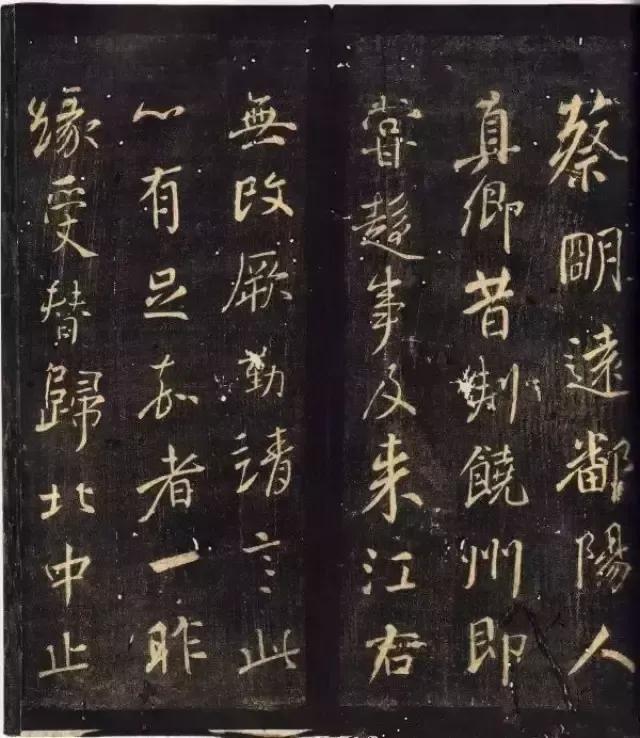 蔡朙遠鄱陽人
真卿昔刺饒州即
嘗趨事及来江右
無改厥勤靖言此
心有足嘉者一昨
緣受替歸北中止